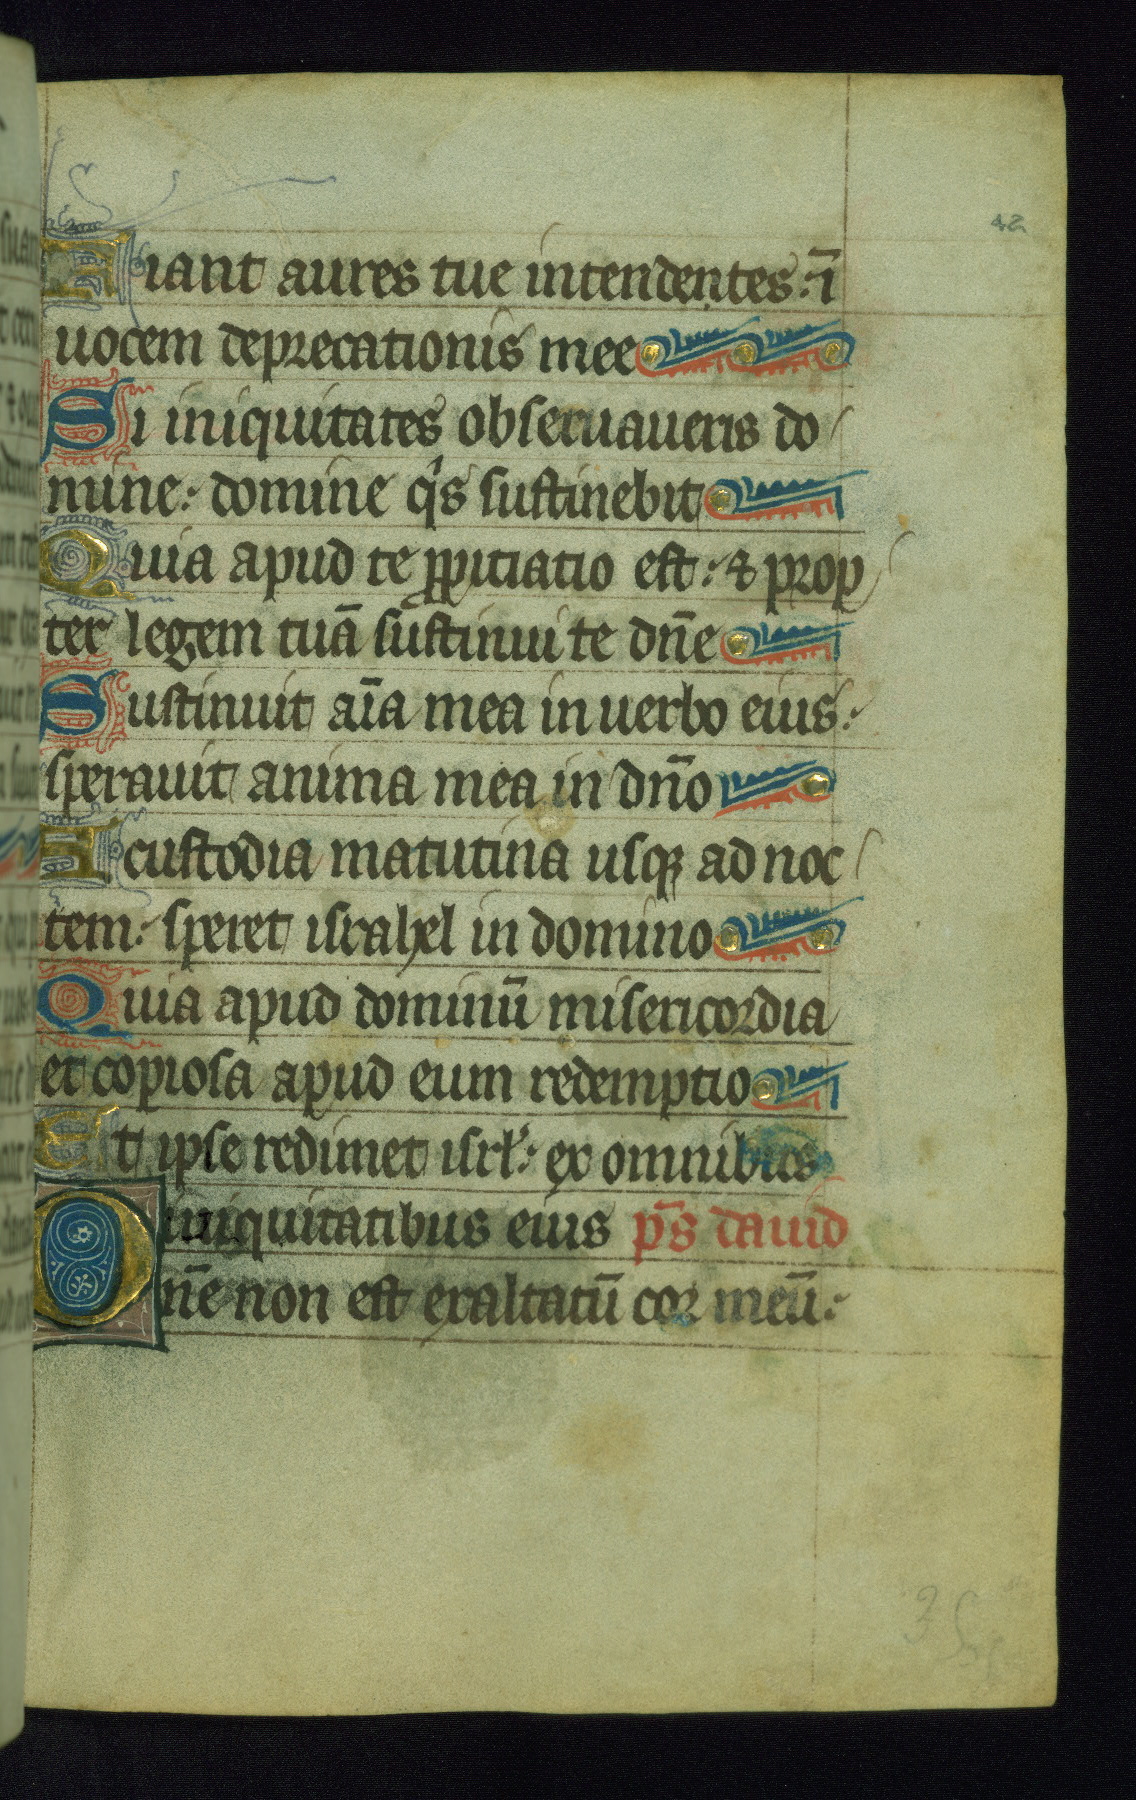 42
Fiant aures tue intendentes: ī
uocem deprecationis mee
Si iniquitates obseruaueris do
mine: domine qⁱs sustinebit
Quia apud te ꝓpitiatio est: & prop
ter legem tuā sustinui te dn̄e
Sustinuit aīa mea in uerbo eius:
sperauit anima mea in dn̄o
A custodia matutina usqꝫ ad noc
tem: speret israhel in domino
Quia apud dominū misericordia
et copiosa apud eum redemptio
Et ipse redimet isrl': ex omnibus
iniquitatibus eius p̄s dauid
Dn̄e non est exaltatū cor meū: